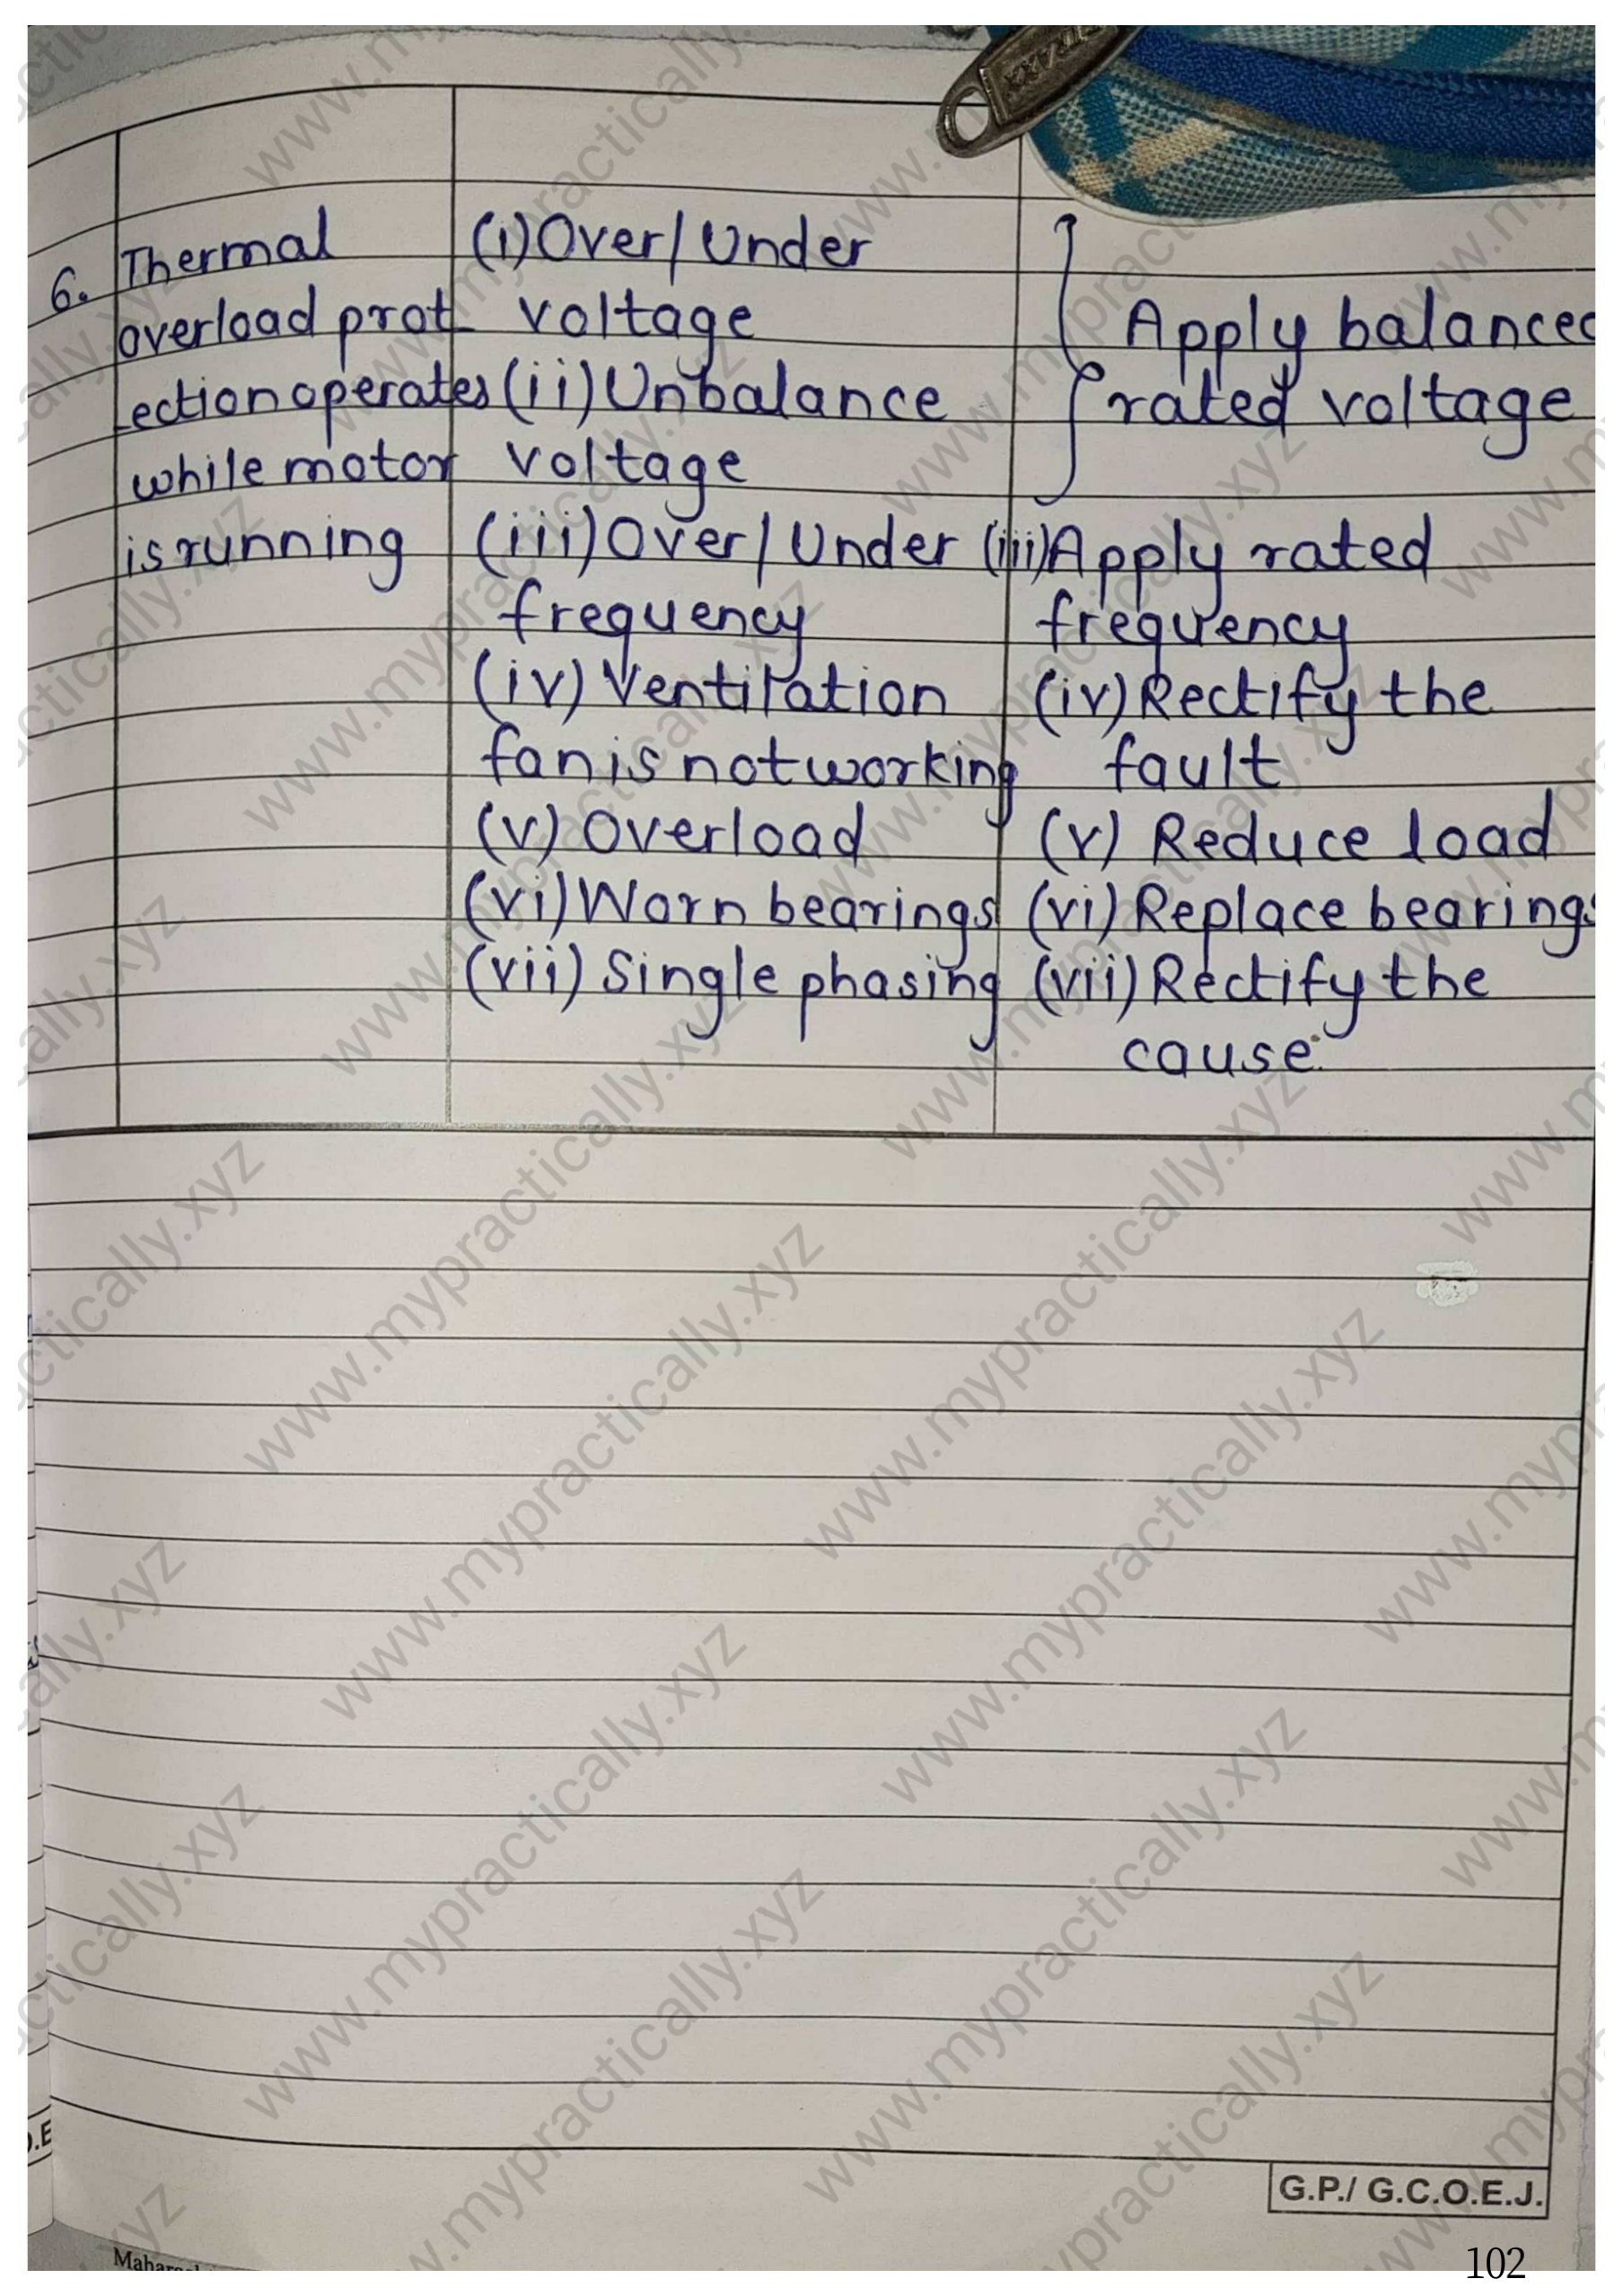 6. Thermal (i) Over/Under
overload prot- voltage Apply balanced
ection operates (ii) Unbalance rated voltage
while motor voltage
is running (iii) Over/Under (iii) Apply rated
frequency frequency
(iv) Ventilation (iv) Rectify the
fan is not working fault
(v) Overload (v) Reduce load
(vi) Worn bearings (vi) Replace bearings
(vii) Single phasing (vii) Rectify the
cause.
G.P./ G.C.O.E.J.
102
www.mypractically.xyz